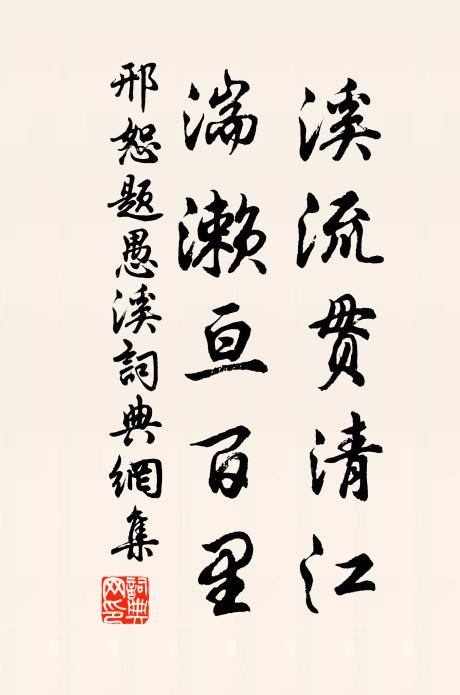 溪流贯清江
湍濑亘百里
邢恕题愚溪詞典網集
詞典网印